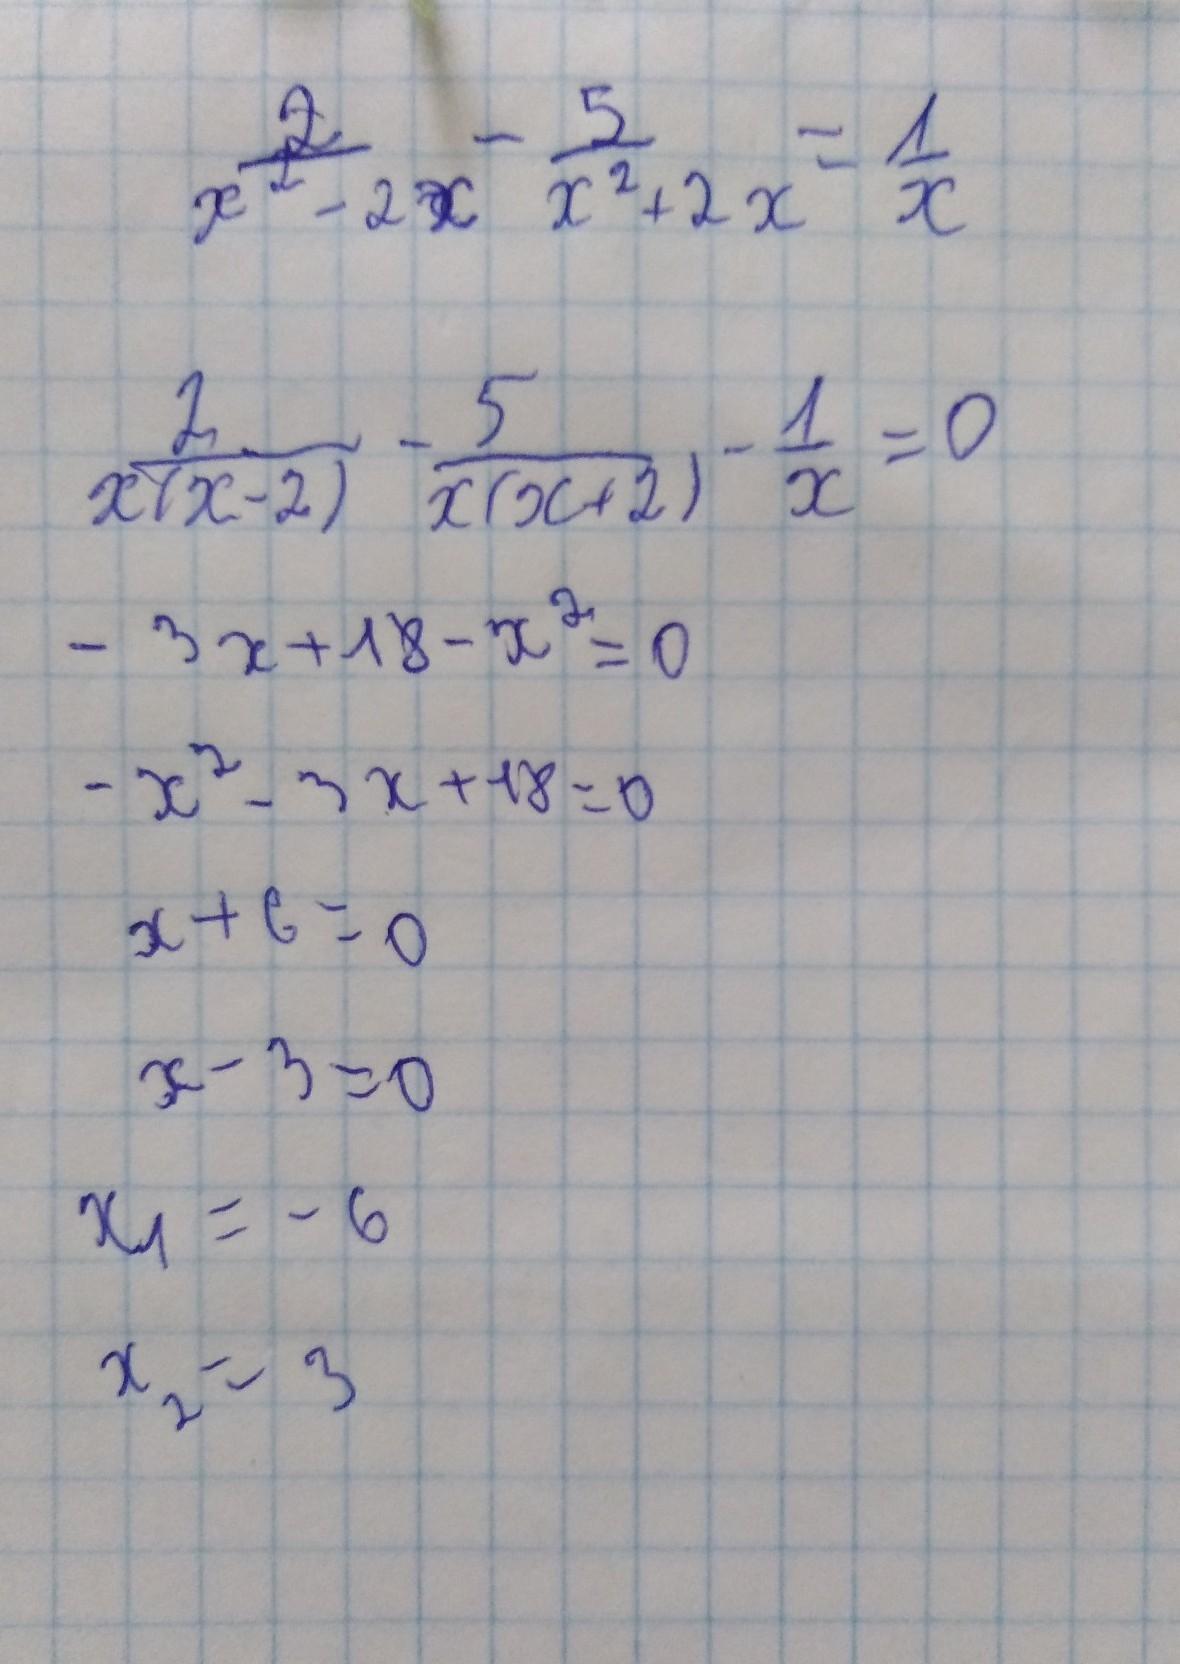 2/(x² - 2x) - 5/(x² + 2x) = 1/x
2/(x(x-2)) - 5/(x(x+2)) - 1/x = 0
- 3x + 18 - x² = 0
- x² - 3x + 18 = 0
x + 6 = 0
x - 3 = 0
x₁ = - 6
x₂ = 3